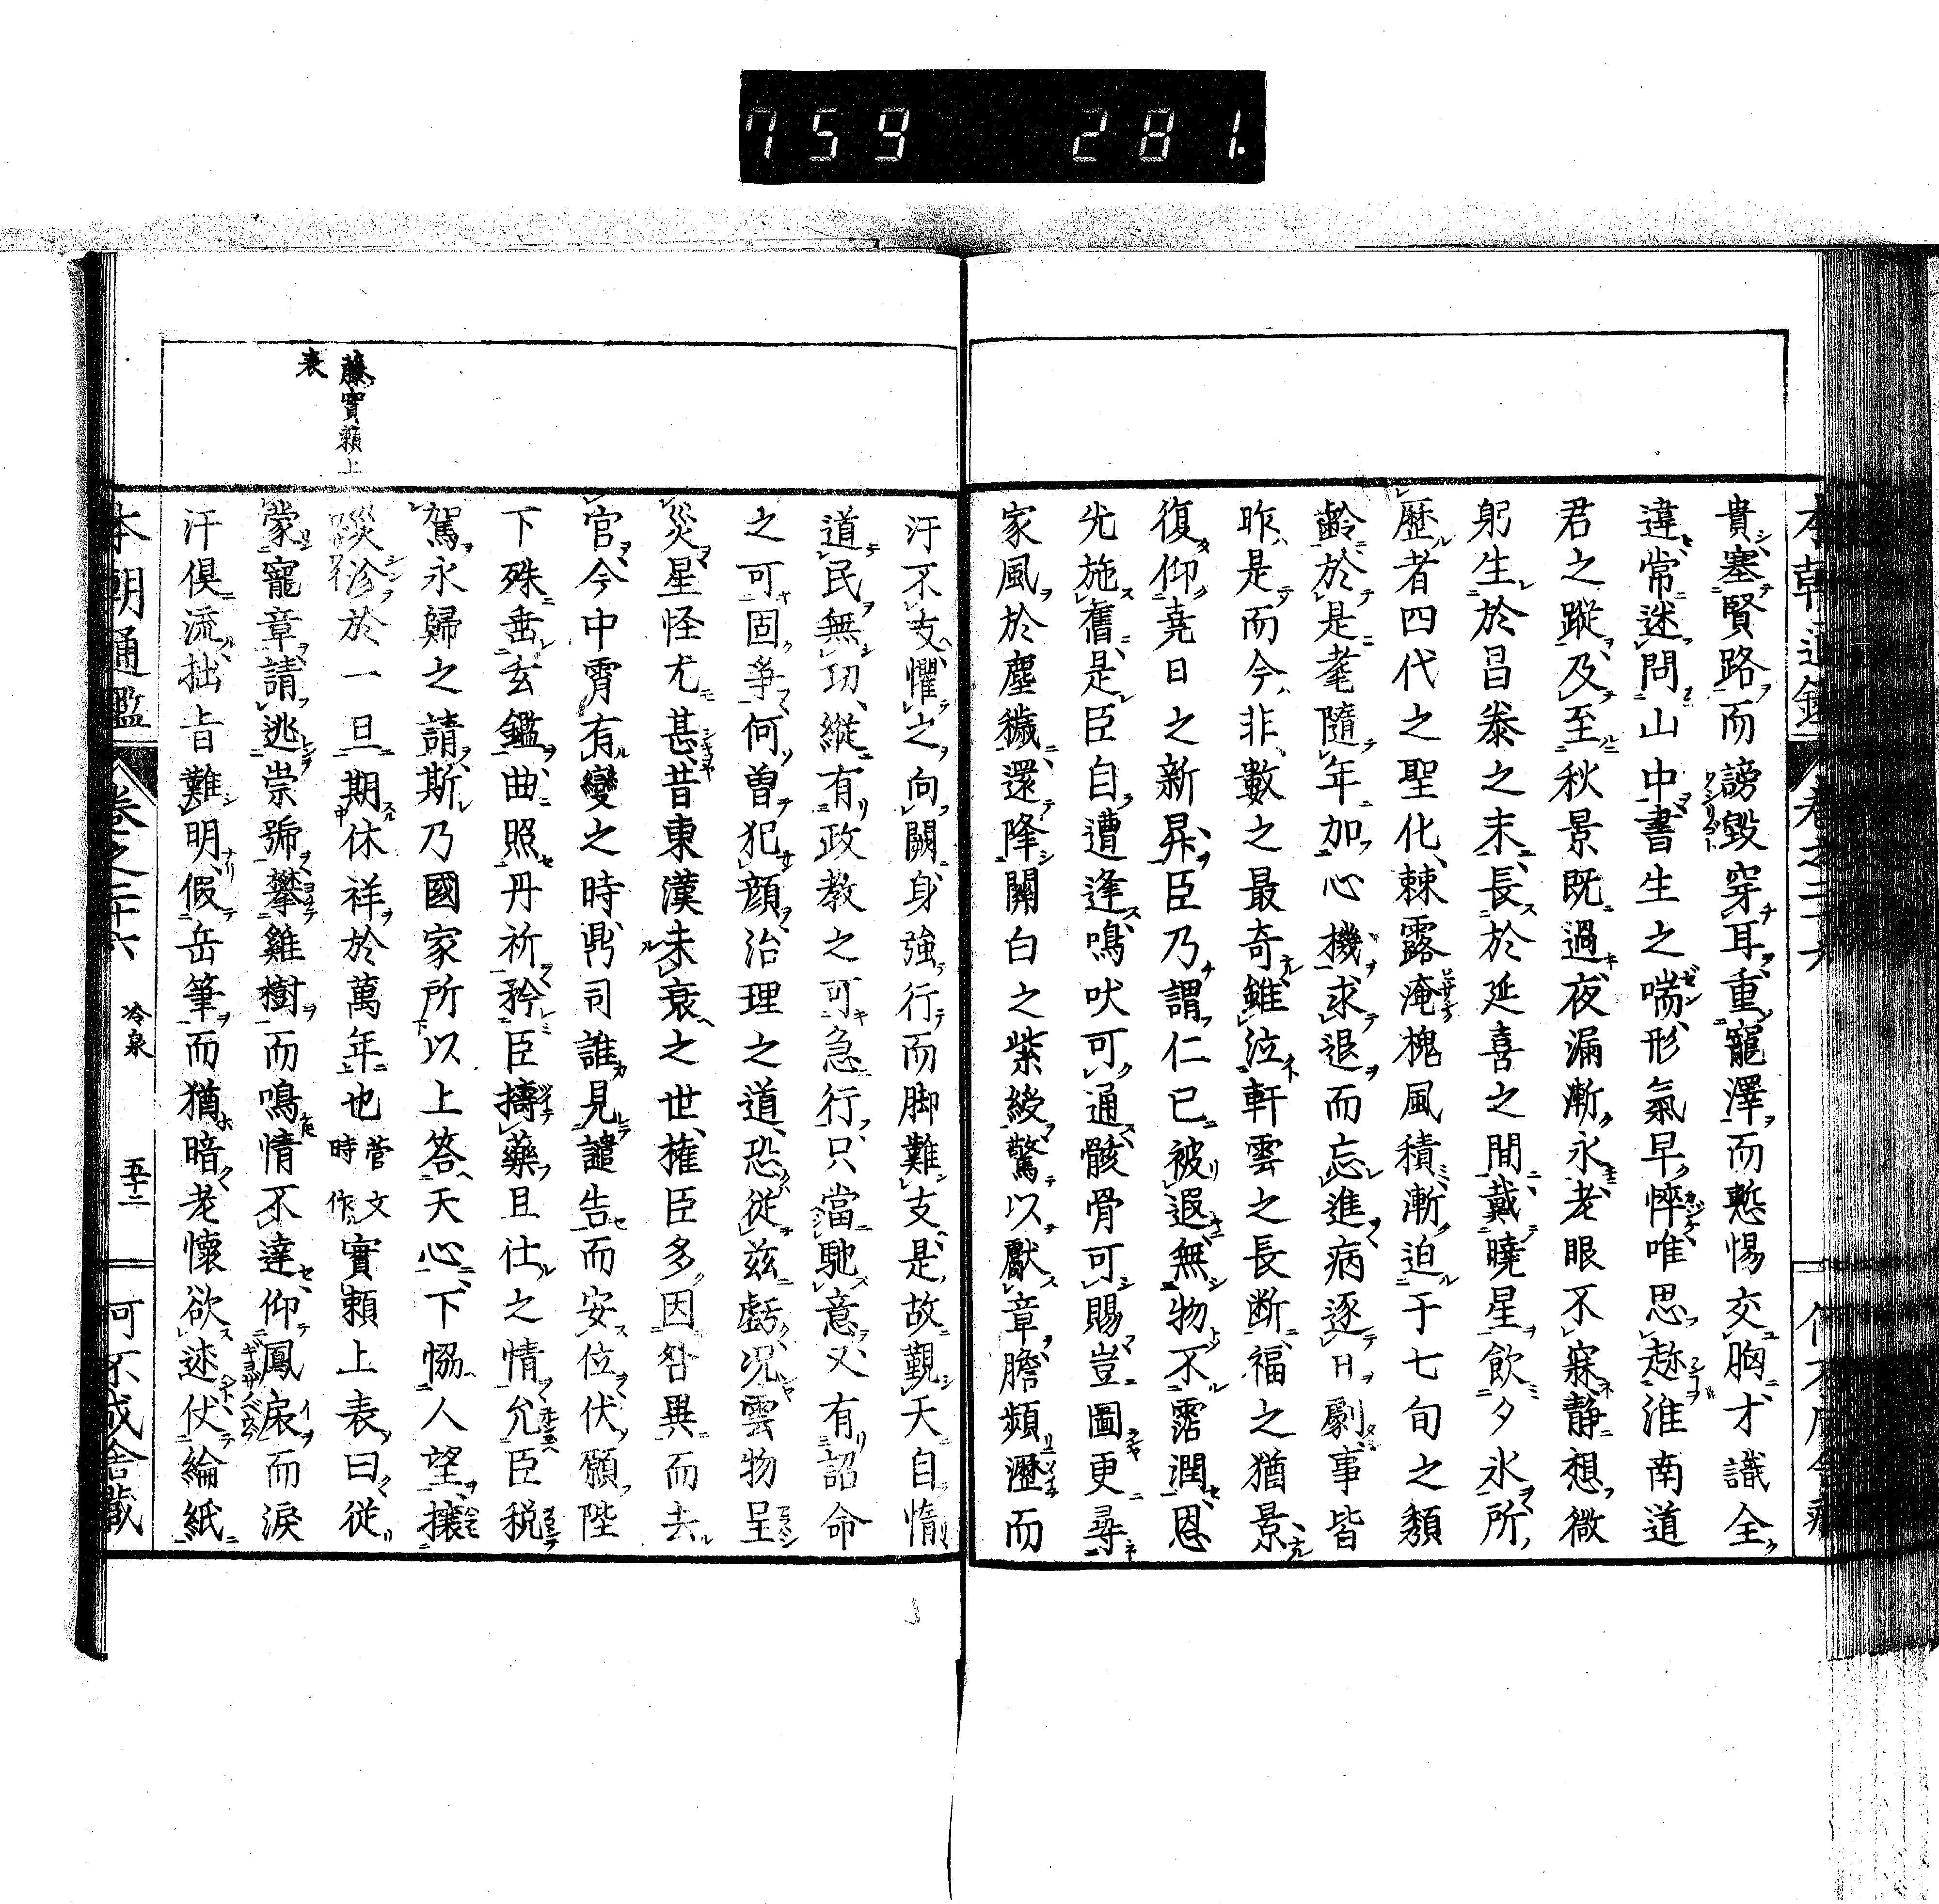 759 281.
貴塞賢路而謗毀穿耳重寵澤而慙惕交胸才識全
違常迷問山中書生之喘形氣早悴唯思趂淮南道
君之蹤及至秋景既過夜漏漸永老眼不寐静想微
躬生於昌泰之末長於延喜之間戴曉星飲夕氷所
歷者四代之聖化棘露淹槐風積漸迫于七旬之頽
齡於是耄隨年加心機求退而忘進病逐日劇事皆
昨是而今非數之最奇雖泣軒雲之長断福之猶景
復仰堯日之新昇臣乃謂仁已被遐無物不霑潤恩
先施舊是臣自遭逢鳴吠可通骸骨可賜豈圖更尋
家風於塵穢還降關白之紫綬驚以獸章膽頻瀝而
汙不支懼之向闕身強行而脚難支是故觀天自惰
道民無功縦有政教之可急行只當馳意又有詔命
之可固爭何曽犯顔治理之道恐従茲虧况雲物呈
災星怪尤甚昔東漢未衰之世権臣多因咎異而去
官今中霄有變之時鼎司誰見譴告而安位伏願陛
下殊垂玄鑑曲照丹祈矜臣擣藥且仕之情允臣税
駕永歸之請斯乃國家所以上答天心下恊人望攘
災沴於一旦期休祥於萬年也菅文時作實頼上表曰従
蒙寵章請逃崇號攀雞樹而鳴情不達仰鳳扆而淚
汗倶流拙旨難明假岳筆而猶暗老懷欲述伏綸紙
藤實頼上
表
本朝通鑑 卷之二十六 冷泉 五十二 何不成舎藏